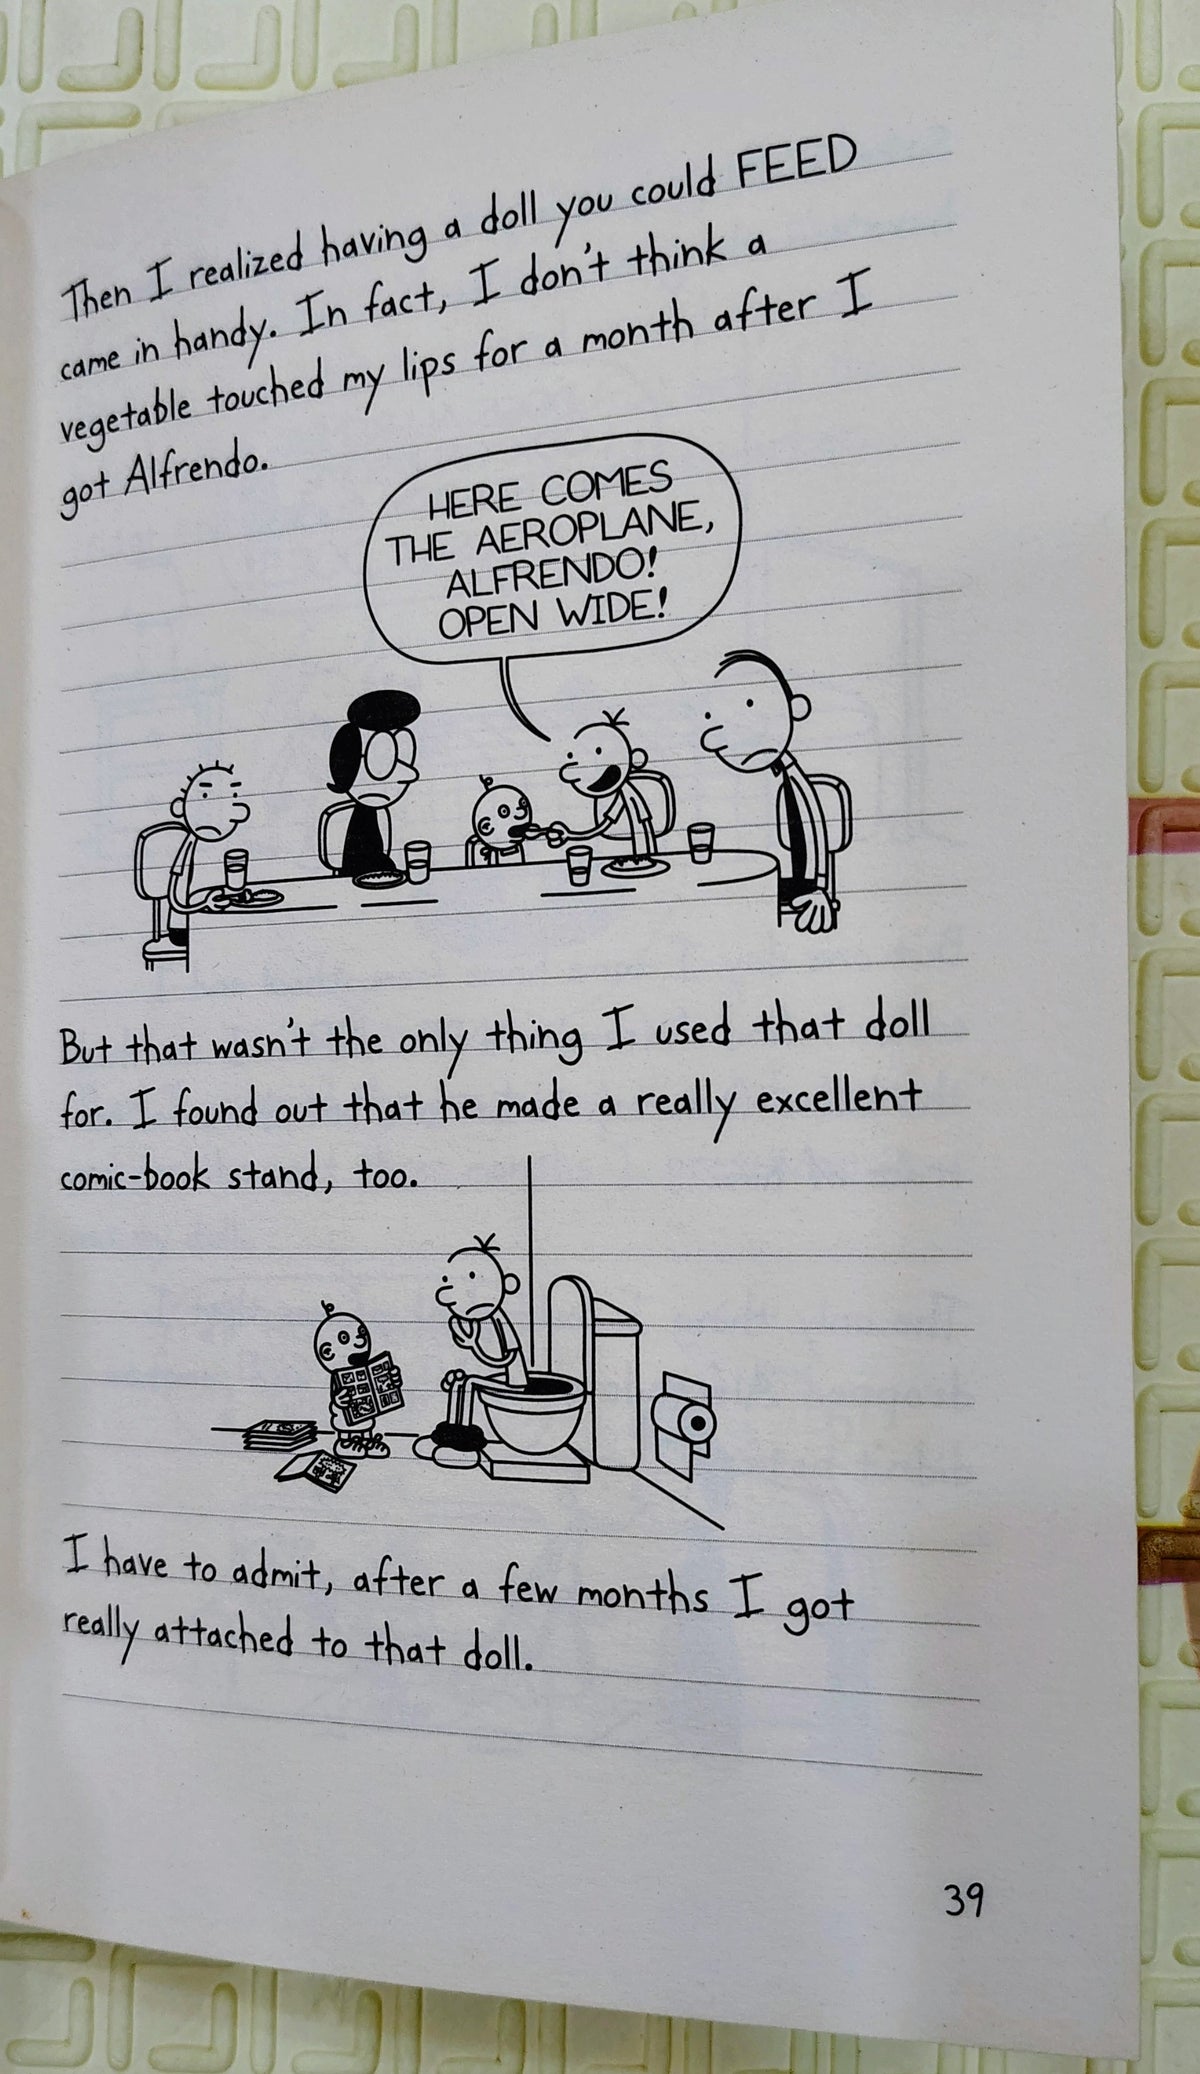 Then I realized having a doll you could FEED
came in handy. In fact, I don't think a
vegetable touched my lips for a month after I
got Alfrendo.
HERE COMES
THE AEROPLANE,
ALFRENDO!
OPEN WIDE!
But that wasn't the only thing I used that doll
for. I found out that he made a really excellent
comic-book stand, too.
I have to admit, after a few months I got
really attached to that doll.
39